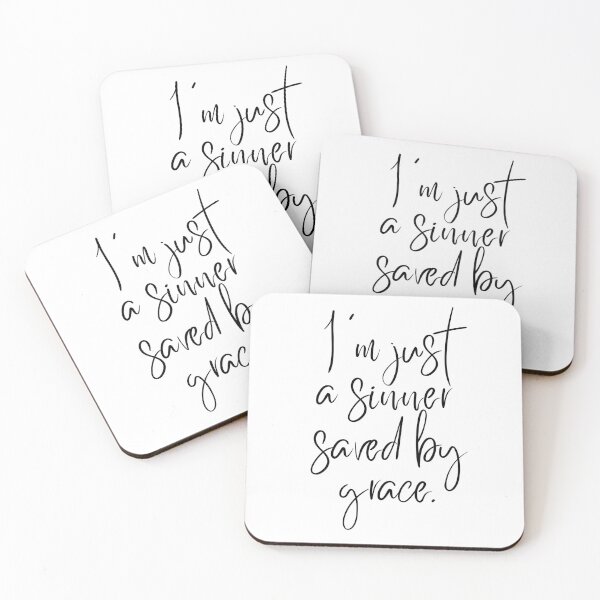 I'm just
a sinner
by
I'm just
a sinner
saved by
I'm just
a sinner
saved by
grace
I'm just
a sinner
saved by
grace.